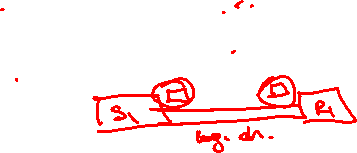 S₁ R₁
log. ch.